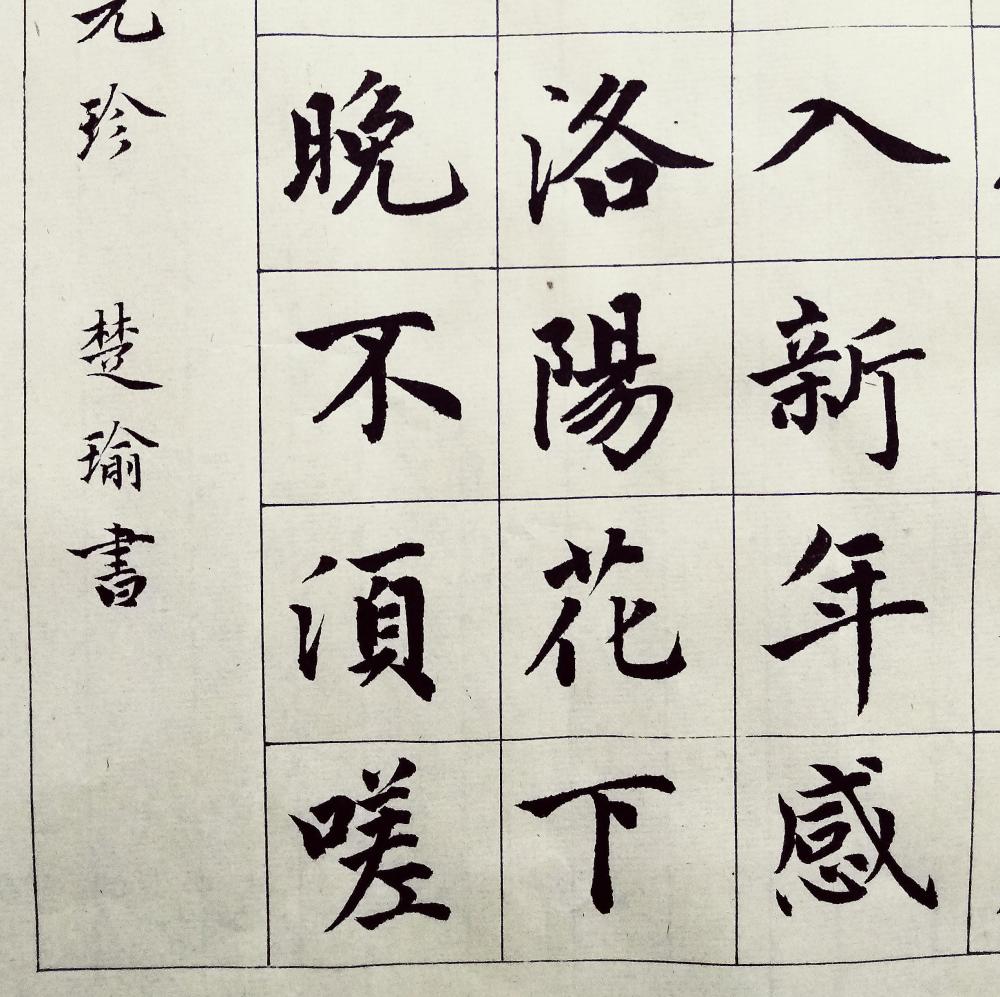 入新年感
洛陽花下
晚不須嗟
元珍 楚瑜書